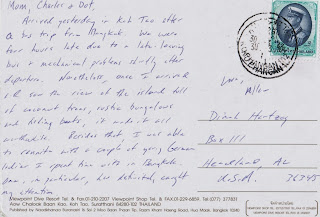 Mom, Charles & Dot,
Arrived yesterday in Koh Tao after
a bus trip from Bangkok. We were
four hours late due to a late leaving
bus & mechanical problems shortly after
departure. Nonetheless, once I arrived
& saw the view of the island full
of coconut trees, rustic bungalows
and fishing boats, it made it all
worthwhile. Besides that I was able
to consort with a couple of young German
ladies I spent time with in Bangkok.
One, in particular, has definitely caught
my attention.
Love,
Allen
Box 111
Headland, AL
U.S.A. 36345
View Point Dive Resort Tel. & Fax.01-210-2207 Viewpoint Shop Tel. & FAX.01-229-6859, Tel.(077) 377831
Alow Chalok Baan Kao, Koh Tao, Suratthani 84280-102 THAILAND